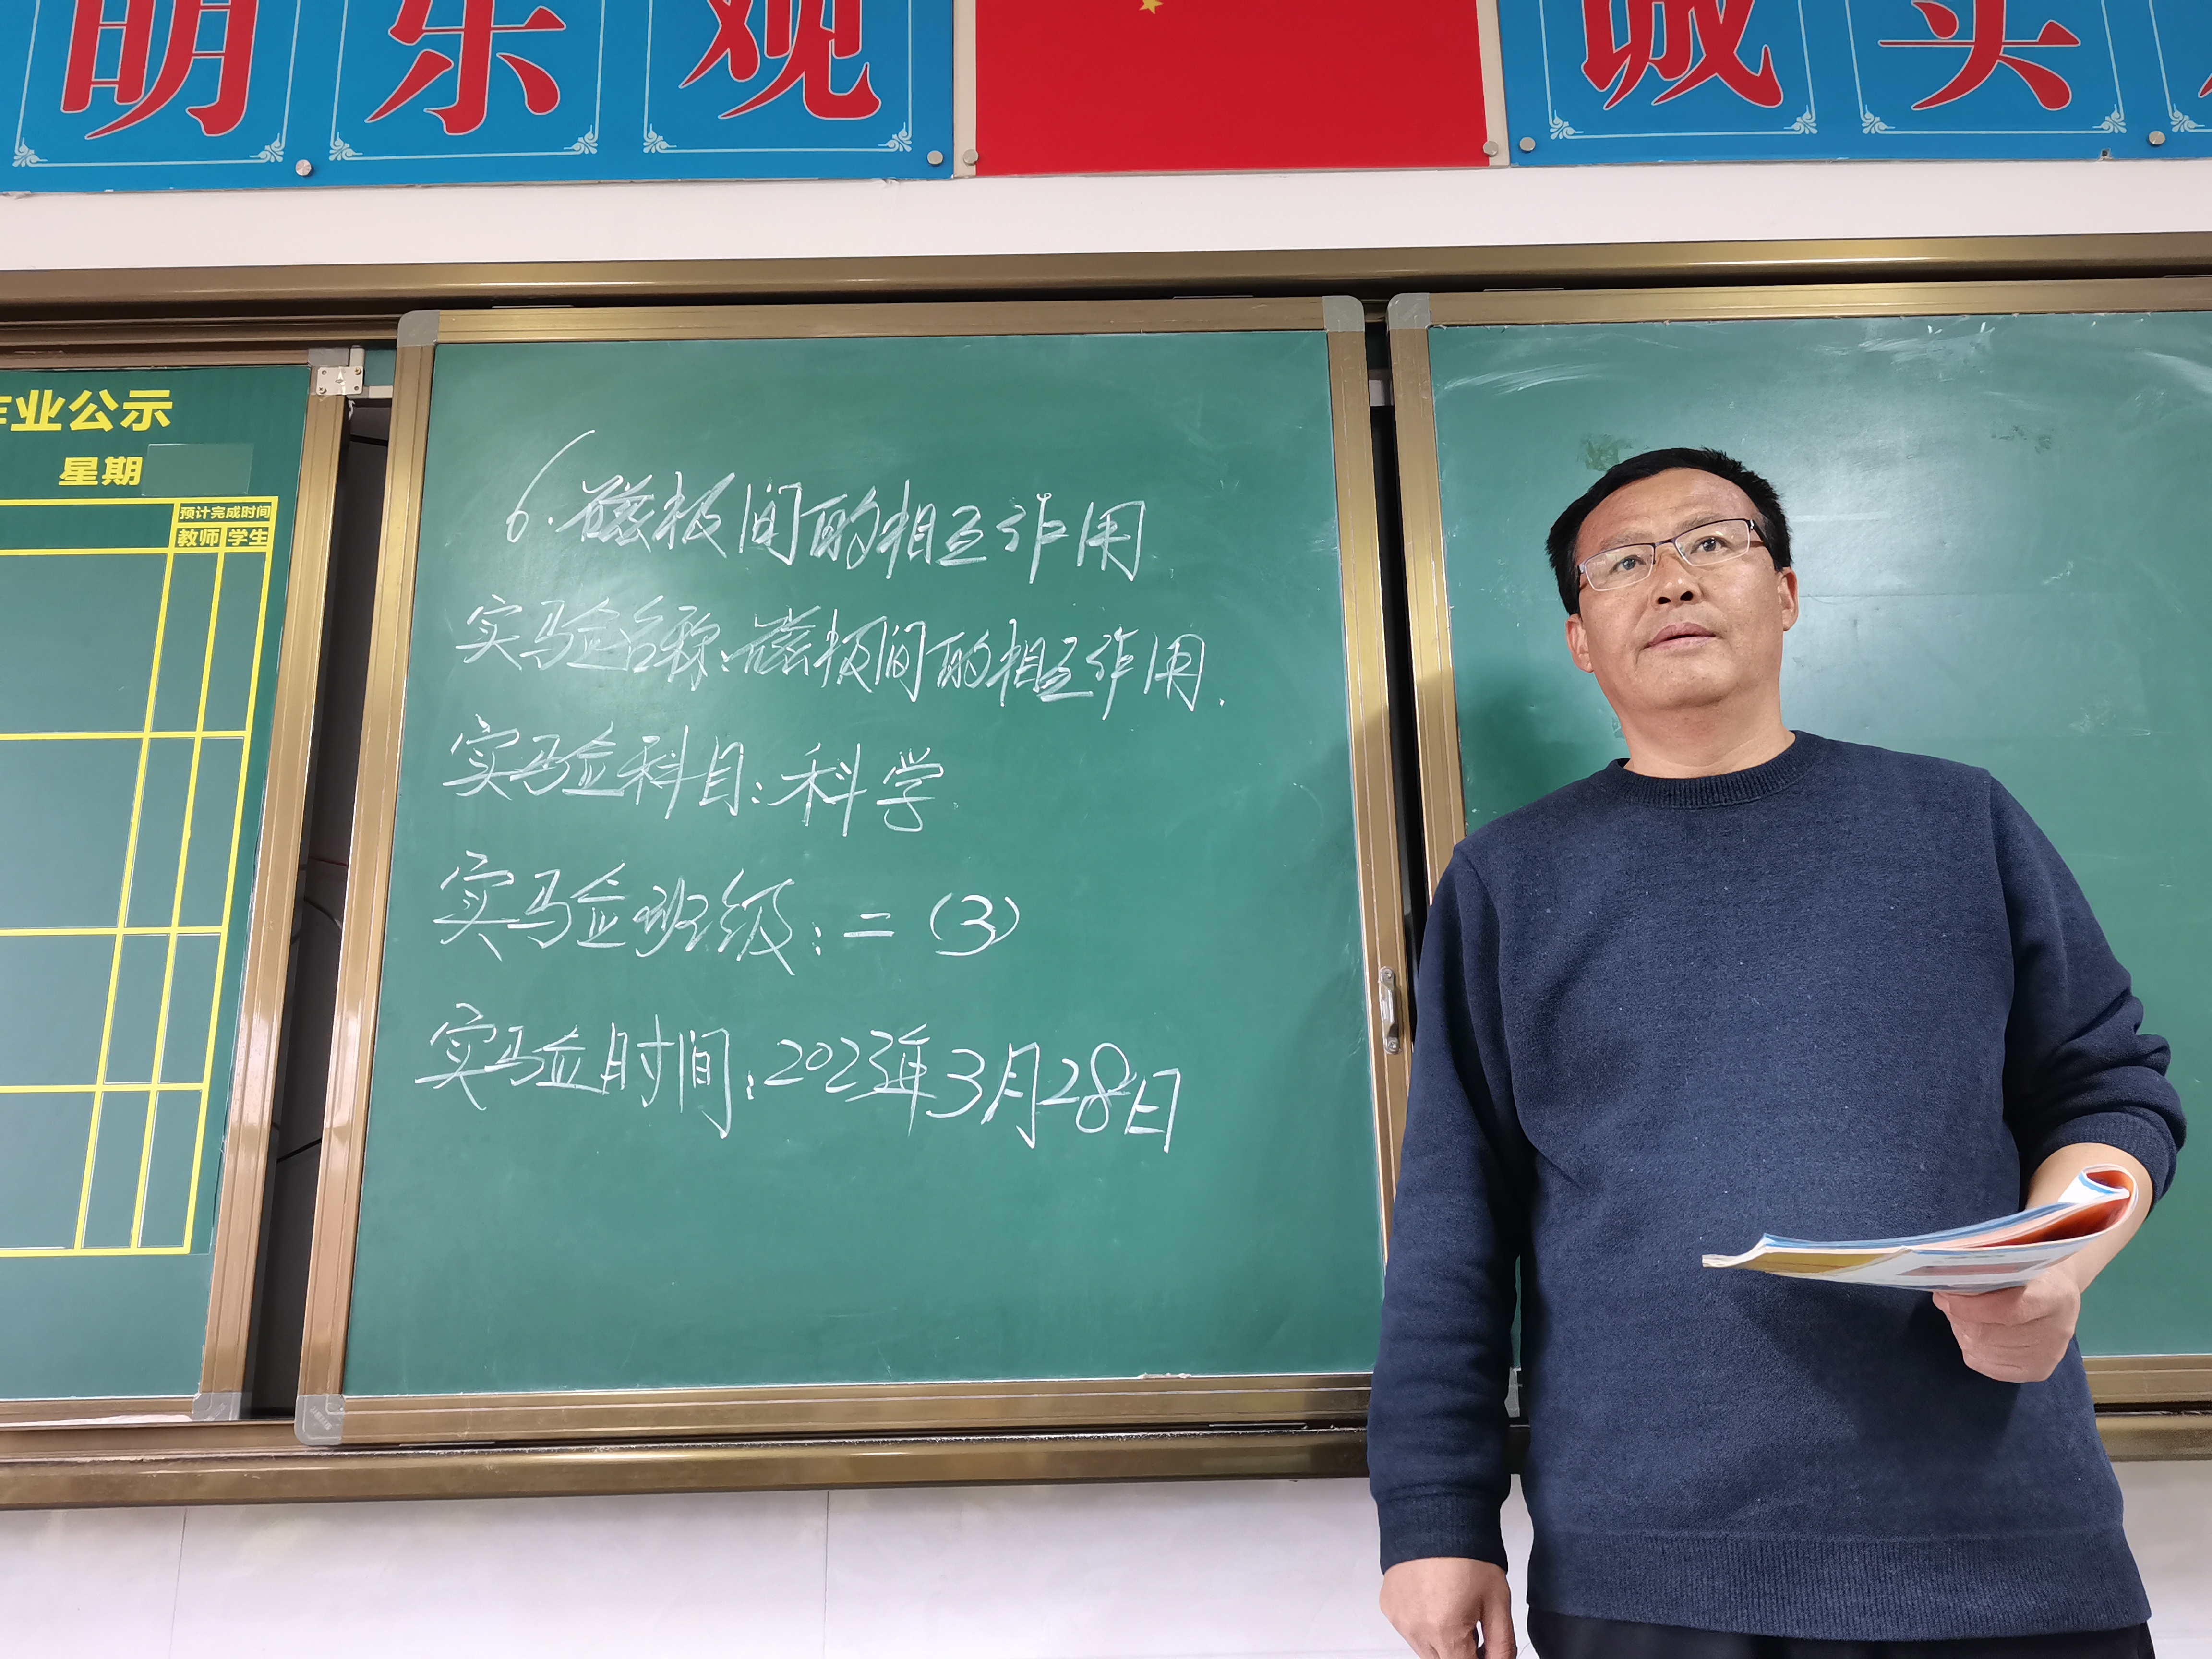 明 乐 观
诚 实
作业公示
星期
预计完成时间
教师 学生
6.磁极间的相互作用
实验名称:磁极间的相互作用.
实验科目:科学
实验班级:二(3)
实验时间:2023年3月28日